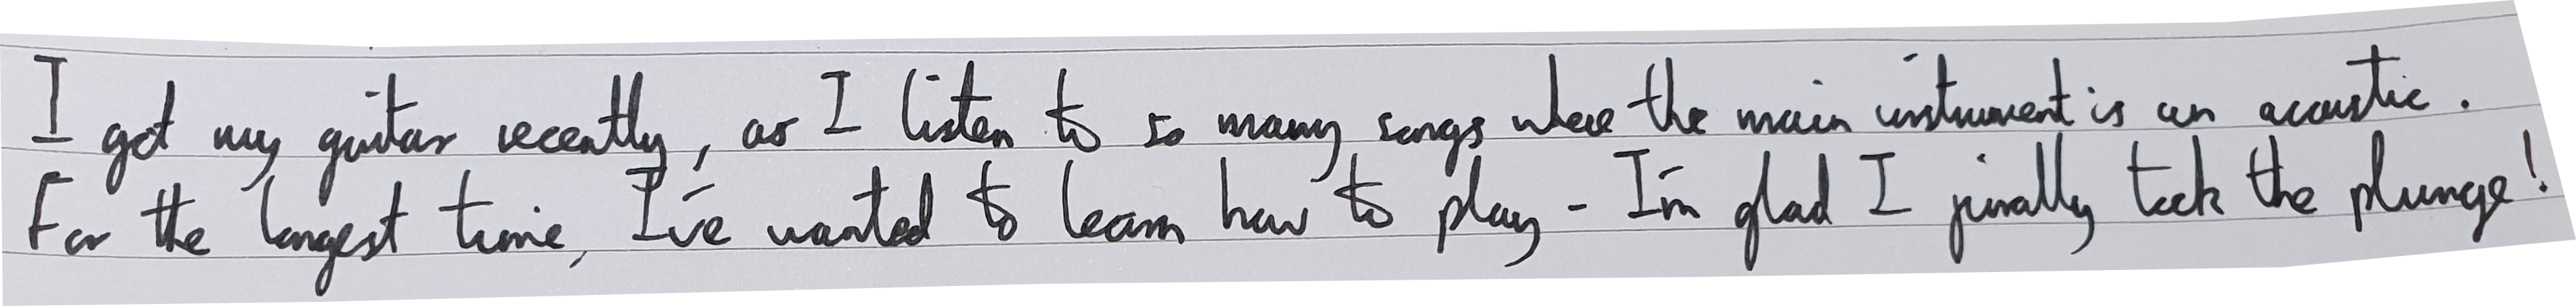 I got my guitar recently, as I listen to so many songs where the main instrument is an acoustic.
For the longest time, I've wanted to learn how to play - I'm glad I finally took the plunge!